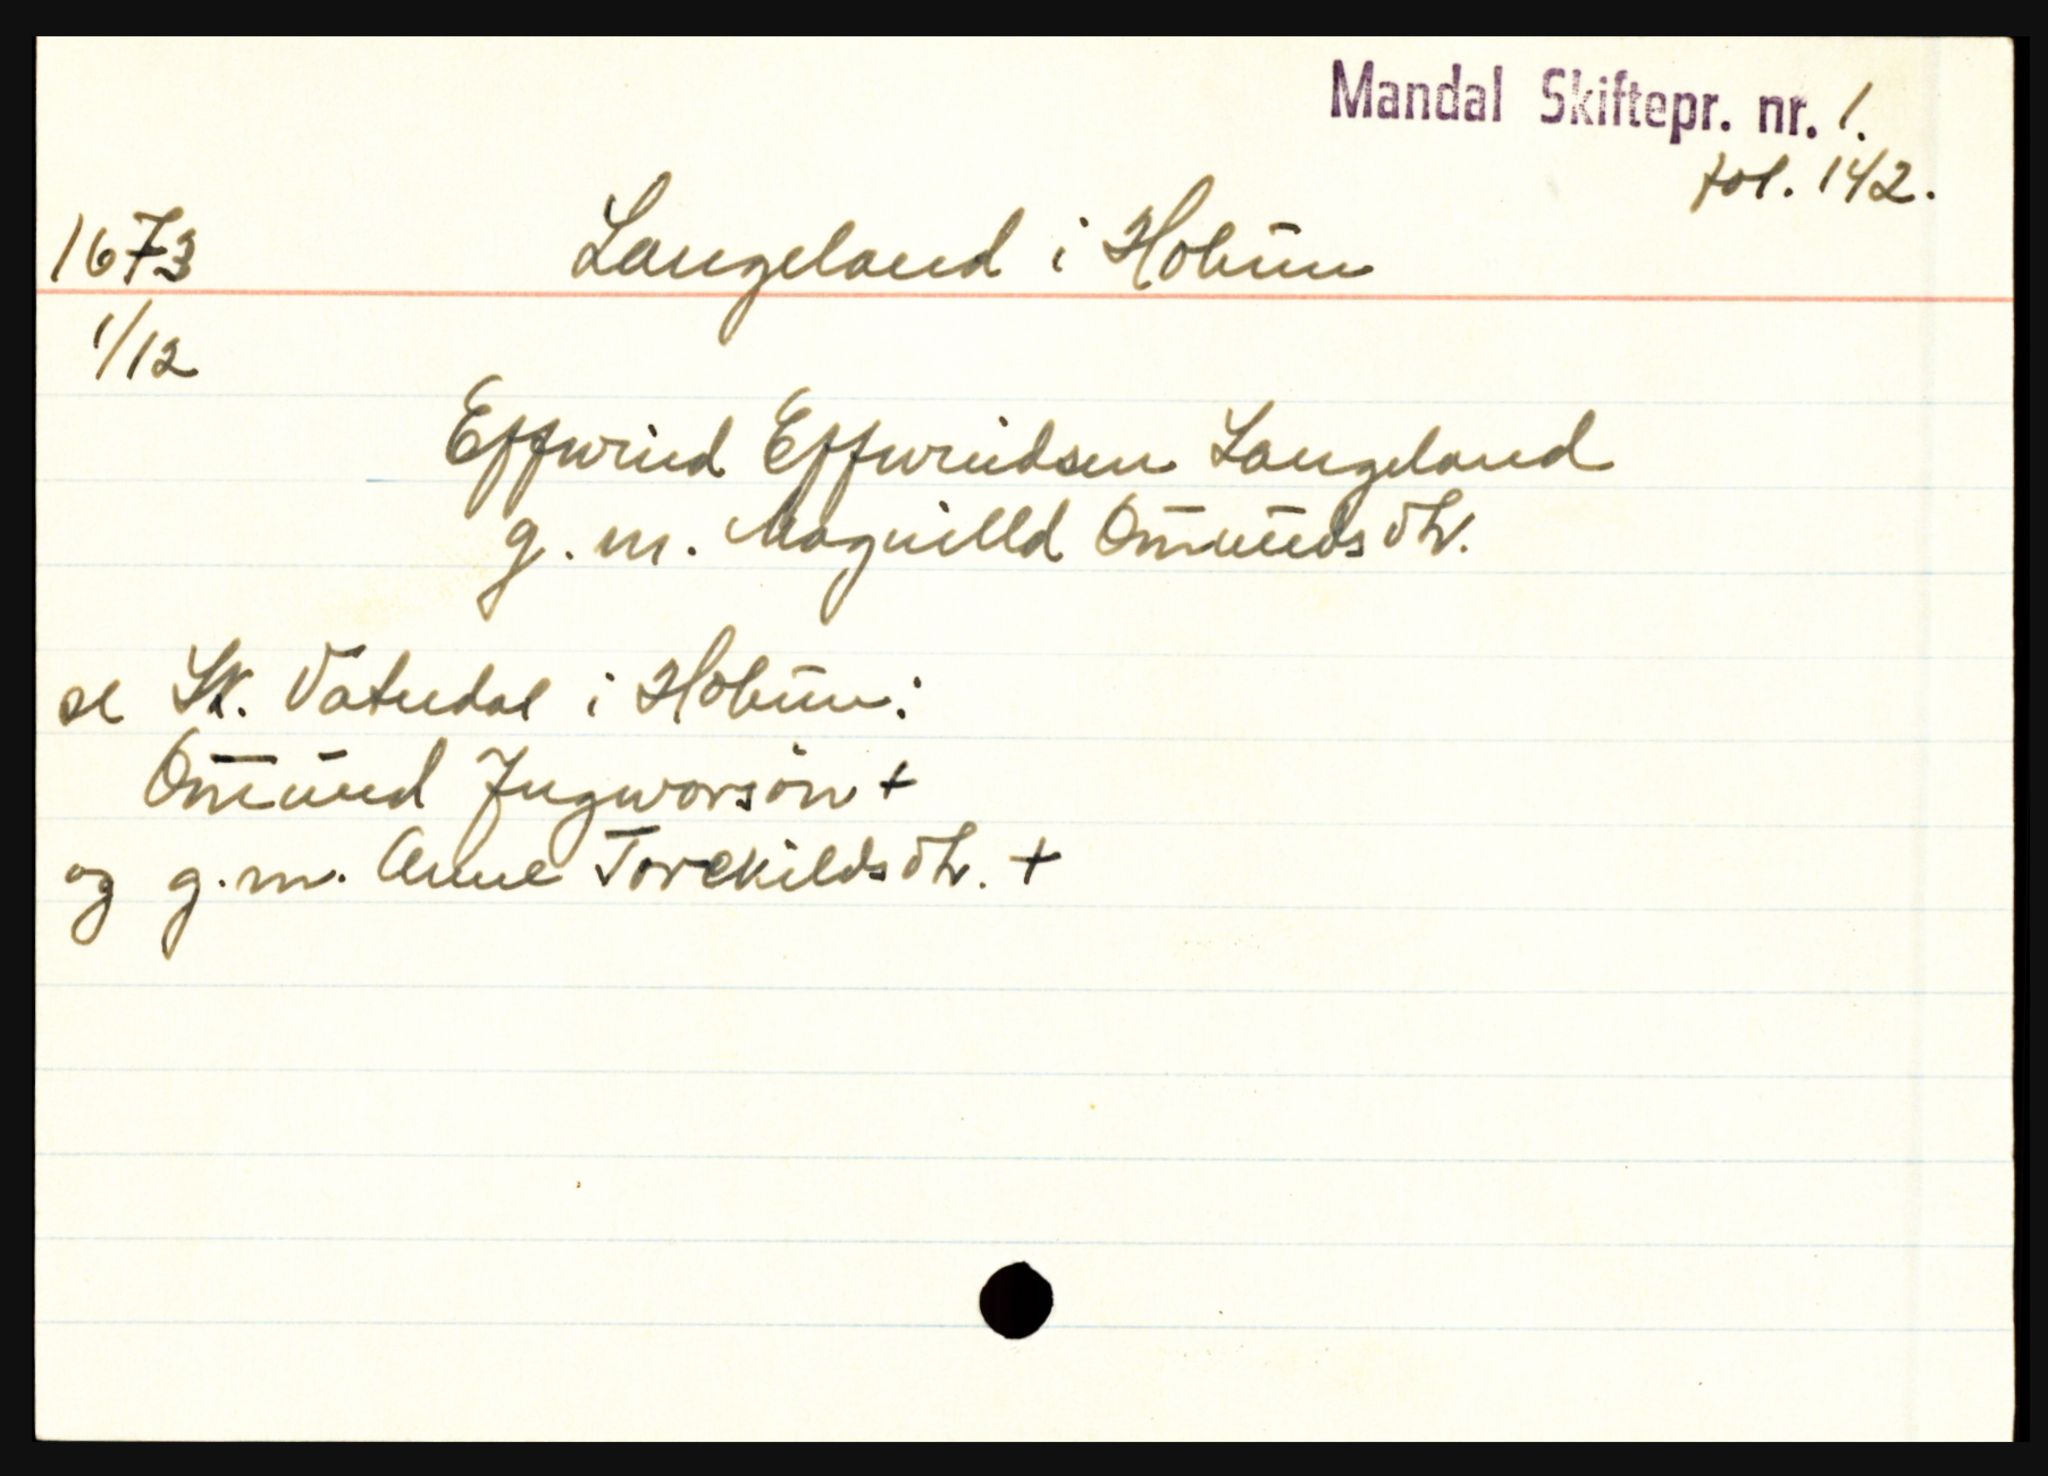 Mandal Skiftepr. nr. 1.
fol. 142.
1673 Langeland i Hobun
1/12
Effwind Effwindsen Langeland
g. m. Magnilld Omunds dtr.
se Sk. Vatnedal i Hobun:
Omund Ingworsøn +
og g.m. Anne Torckilds dtr. +